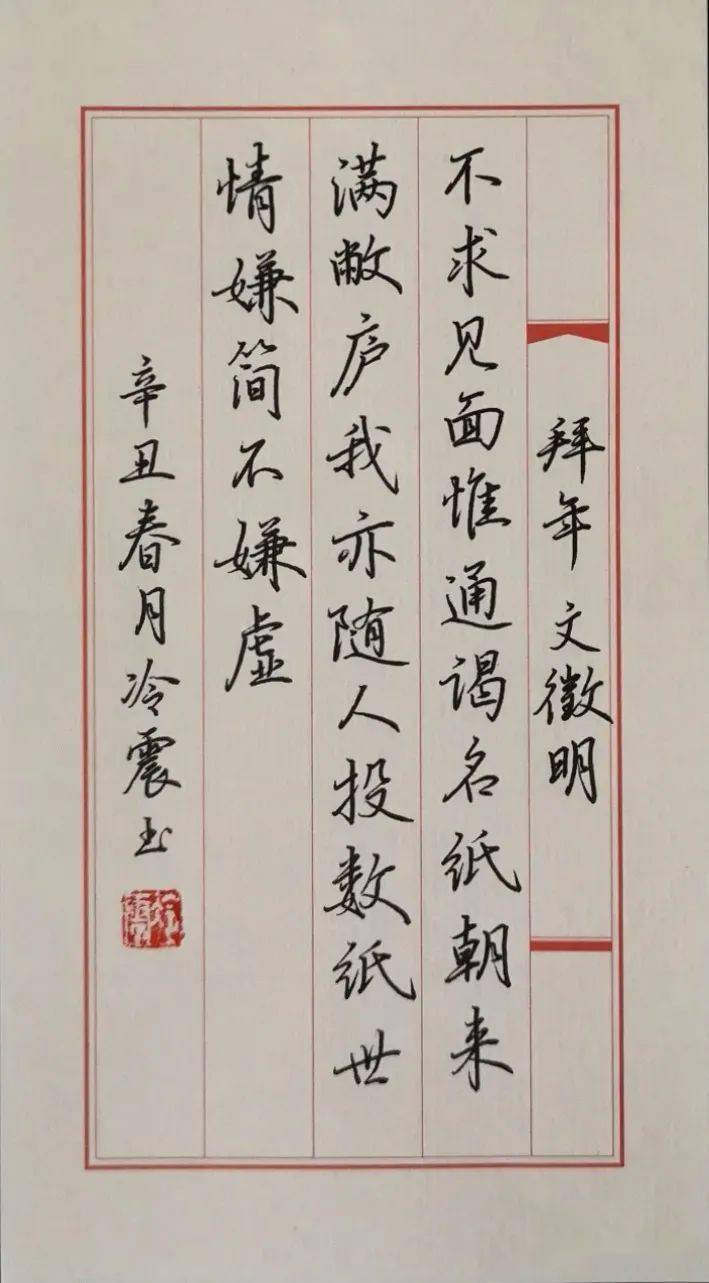 拜年 文徵明
不求见面惟通谒名纸朝来
满敝庐我亦随人投数纸世
情嫌简不嫌虚
辛丑春月冷震书